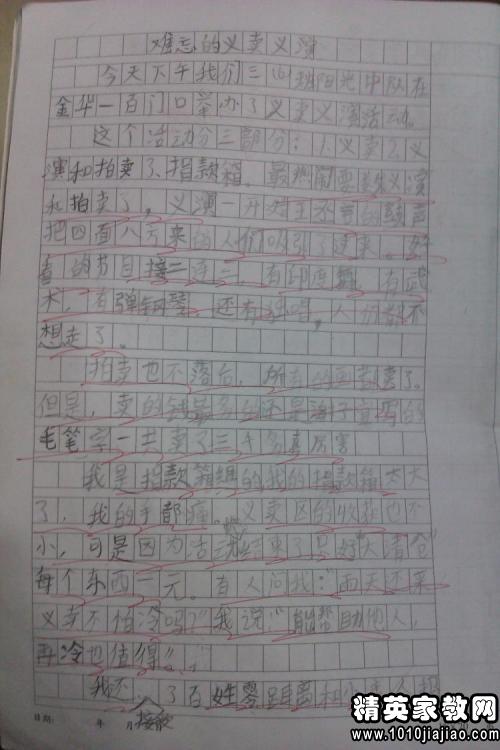 难忘的义卖义演
今天下午我们三(4)班阳光中队在
金华一百门口举办了义卖义演活动。
这个活动分三部分:1.义卖2.义
演和拍卖3.捐款箱。最热闹要数义演
和拍卖了,义演一开始王不声的鼓声
把四面八方来的人们吸引了过来。好
看的节目接二连三,有印度舞,有武
术,有弹钢琴,还有独唱,人们都不
想走了。
拍卖也不落后,所有的画都卖了。
但是,卖的钱最多的还是写的
毛笔字一共卖了三千多真厉害
我是捐款箱组的我的捐款箱太大
了,我的手都痛。义卖区的收获也不
小,可是因为活动快结束了只好"大清仓"
每个东西一元。有人问我:"雨天还来
义卖不怕冷吗?"我说:"能帮助他人,
再冷也值得。"
我还接触了百姓零距离和
日期: 年 月
精英家教网
www.1010jiajiao.com